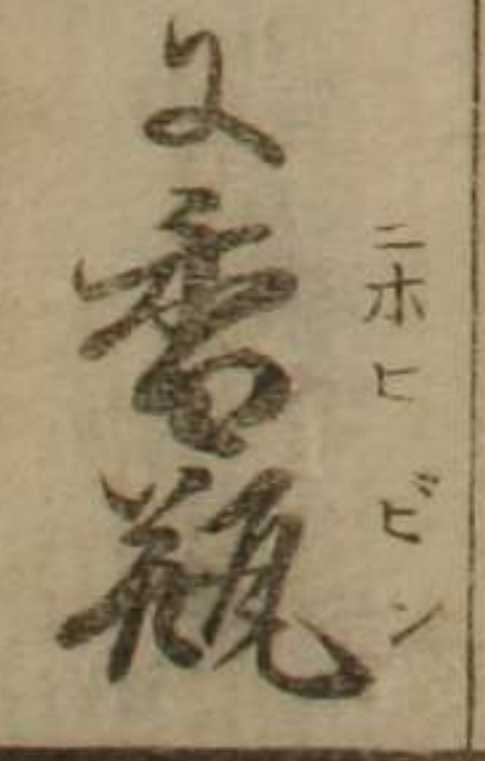 又香瓶
ニホヒビン